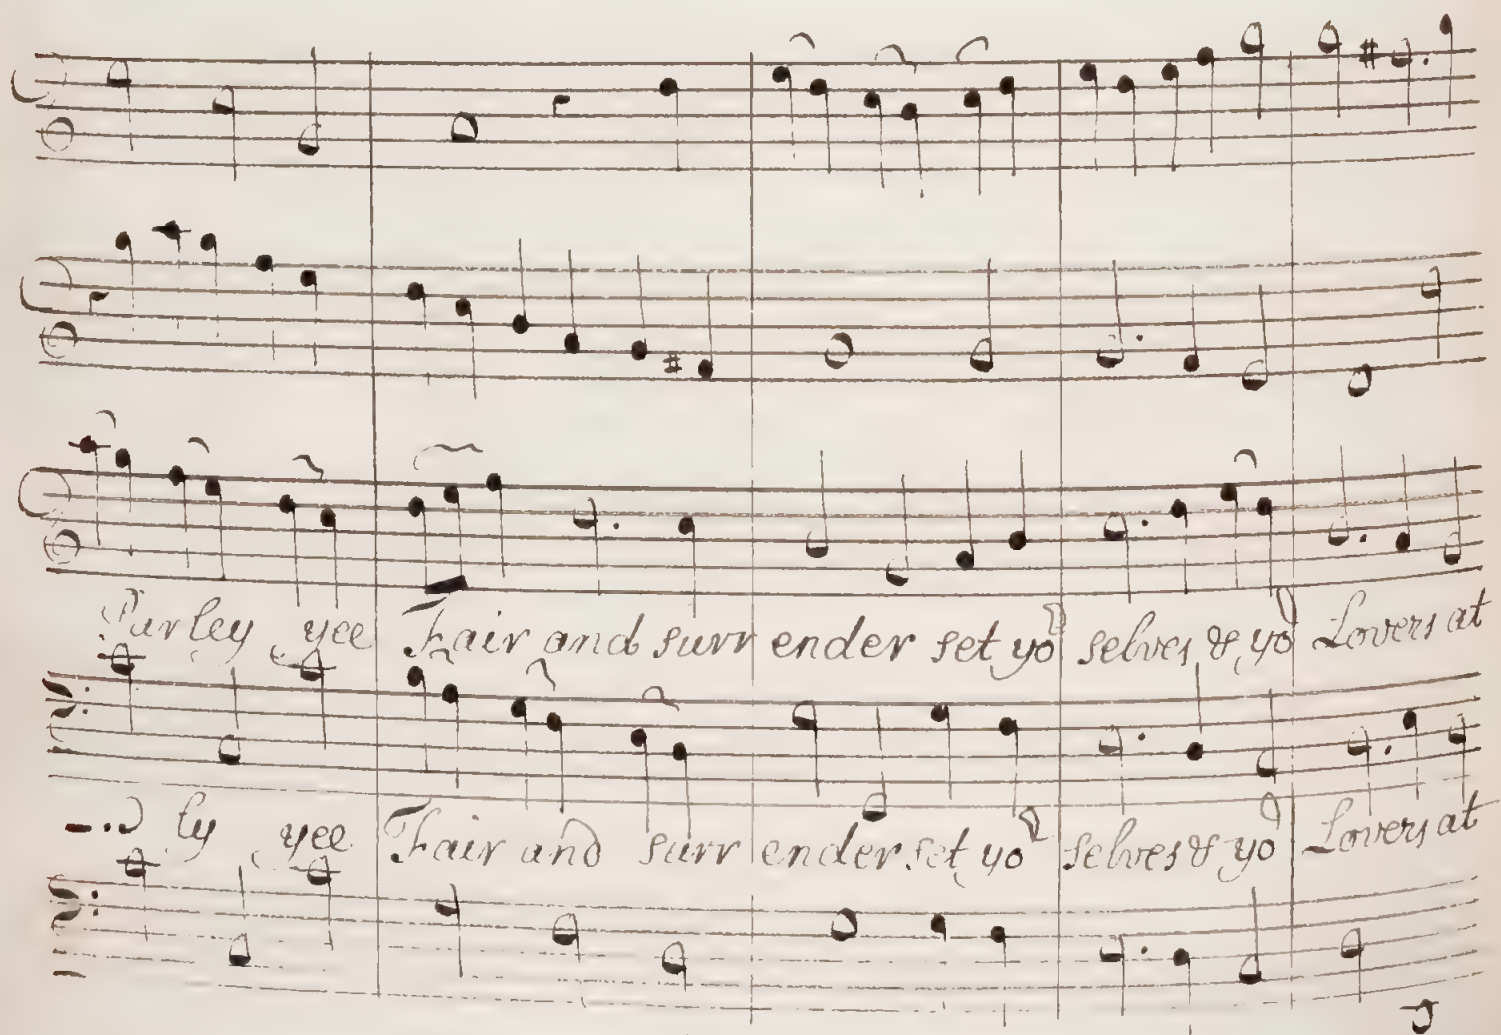 Parley yee Fair and surr ender set yoʳ selves & yoʳ Lovers at
ly yee Fair and surr ender set yoʳ selves & yoʳ Lovers at